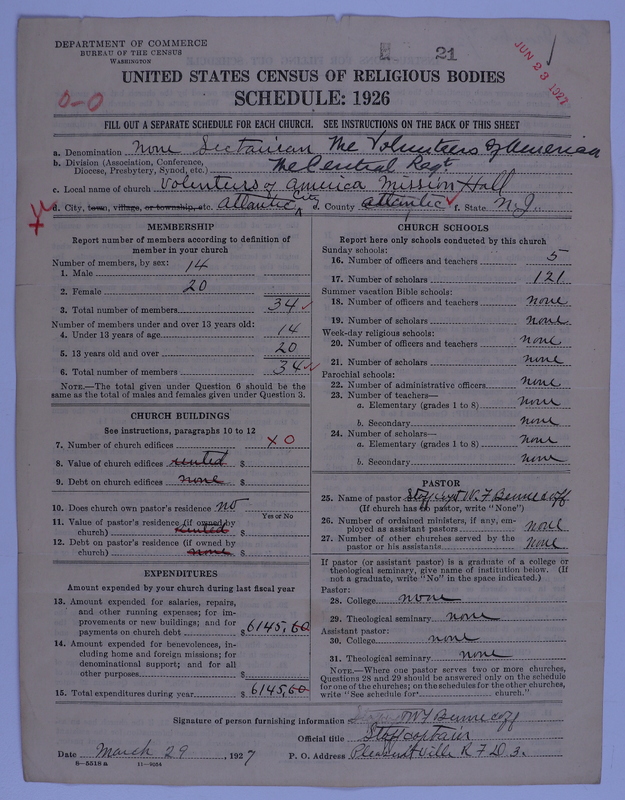 DEPARTMENT OF COMMERCE
BUREAU OF THE CENSUS
WASHINGTON
21
JUN 23 1927
UNITED STATES CENSUS OF RELIGIOUS BODIES
SCHEDULE: 1926
0-0
FILL OUT A SEPARATE SCHEDULE FOR EACH CHURCH. SEE INSTRUCTIONS ON THE BACK OF THIS SHEET
a. Denomination None Sectarian The Volunteers of American
b. Division (Association, Conference, Diocese, Presbytery, Synod, etc.) The Central Regt.
c. Local name of church Volenturs of America Mission Hall
d. City, town, village, or township, etc. Atlantic City e. County Atlantic f. State N.J.
MEMBERSHIP
Report number of members according to definition of
member in your church
Number of members, by sex:
1. Male 14
2. Female 20
3. Total number of members 34
Number of members under and over 13 years old:
4. Under 13 years of age 14
5. 13 years old and over 20
6. Total number of members 34
NOTE.—The total given under Question 6 should be the
same as the total of males and females given under Question 3.
CHURCH BUILDINGS
See instructions, paragraphs 10 to 12
7. Number of church edifices x 0
8. Value of church edifices rented $
9. Debt on church edifices none $
10. Does church own pastor's residence? no
Yes or No
11. Value of pastor's residence (if owned by
church) rented $
12. Debt on pastor's residence (if owned by
church) none $
EXPENDITURES
Amount expended by your church during last fiscal year
13. Amount expended for salaries, repairs,
and other running expenses; for im-
provements or new buildings; and for
payments on church debt $ 6145,60
14. Amount expended for benevolences, in-
cluding home and foreign missions; for
denominational support; and for all
other purposes $
15. Total expenditures during year $ 6145,60
CHURCH SCHOOLS
Report here only schools conducted by this church
Sunday schools:
16. Number of officers and teachers 5
17. Number of scholars 121
Summer vacation Bible schools:
18. Number of officers and teachers none
19. Number of scholars none
Week-day religious schools:
20. Number of officers and teachers none
21. Number of scholars none
Parochial schools:
22. Number of administrative officers none
23. Number of teachers—
a. Elementary (grades 1 to 8) none
b. Secondary none
24. Number of scholars—
a. Elementary (grades 1 to 8) none
b. Secondary none
PASTOR
25. Name of pastor W. F. Bennecoff
(If church has no pastor, write "None")
26. Number of ordained ministers, if any, em-
ployed as assistant pastors none
27. Number of other churches served by the
pastor or his assistants none
If pastor (or assistant pastor) is a graduate of a college or
theological seminary, give name of institution below. (If
not a graduate, write "No" in the space indicated.)
Pastor:
28. College none
29. Theological seminary none
Assistant pastor:
30. College none
31. Theological seminary none
NOTE.—Where one pastor serves two or more churches,
Questions 28 and 29 should be answered only on the schedule
for one of the churches; on the schedules for the other churches,
write "See schedule for church."
Signature of person furnishing information W F Bennecoff
Official title Staff captain
Date March 29, 1927 P. O. Address Pleasantville R F D 3.
8-5518 a 11-9054